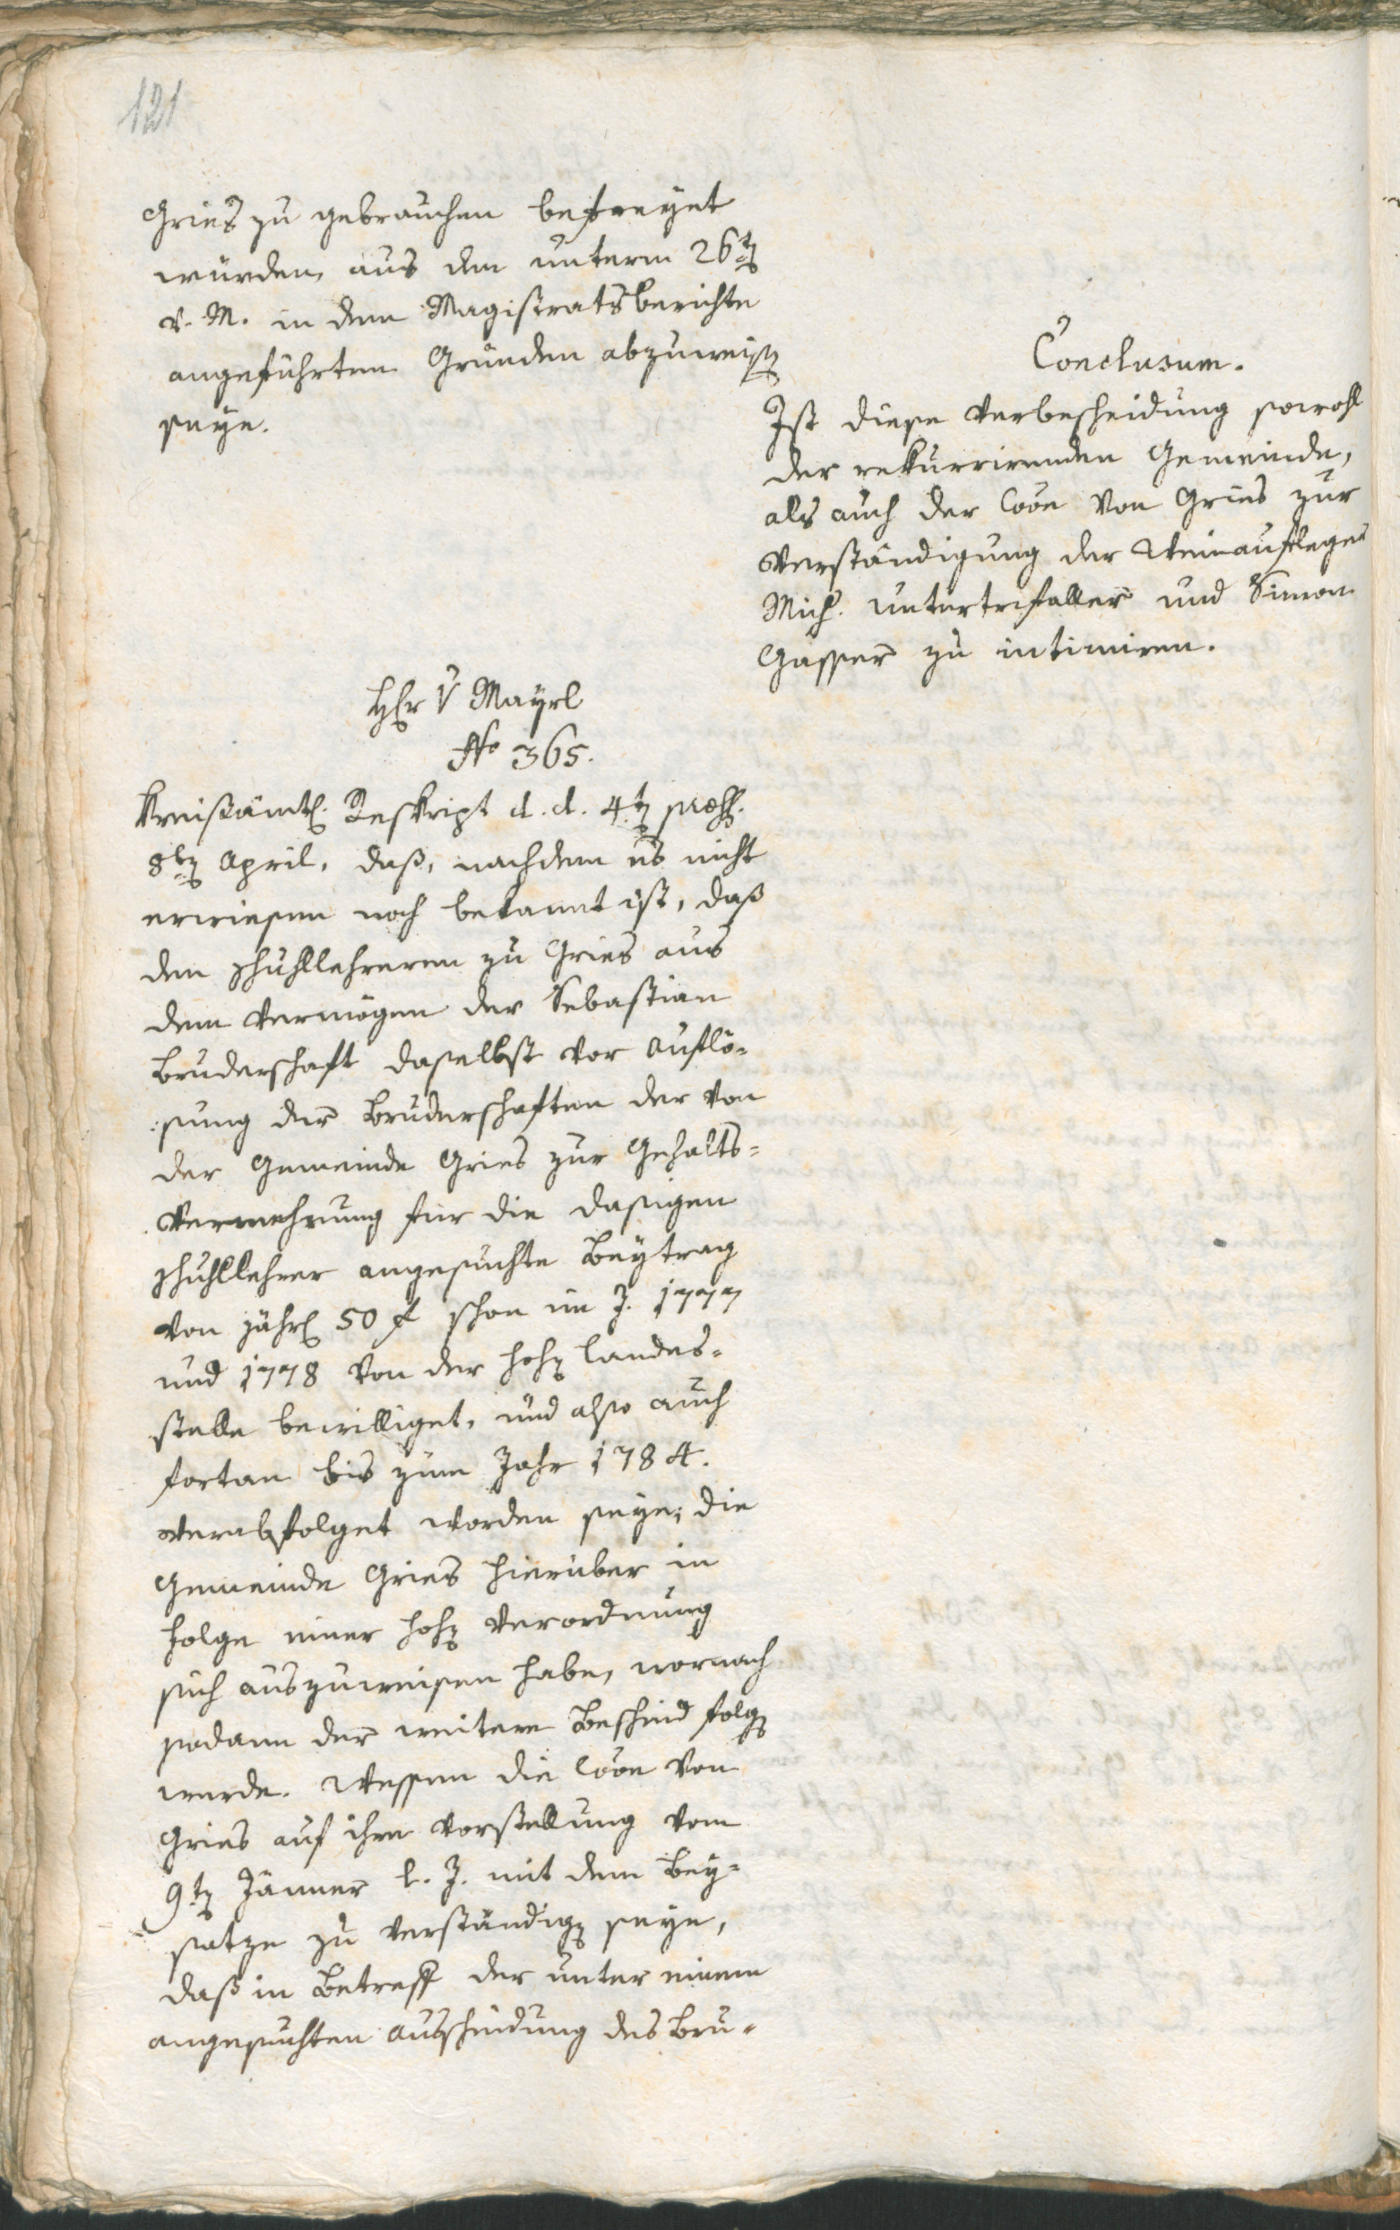 121
Gries zu gebrauchen befreyet
würden, aus den unterm 26ten
v. M. in dem Magistratsberichte
angeführten Gründen abzuweisen
seye.
Conclusum.
Ist diese Verbescheidung sowohl
der rekurrirenden Gemeinde,
als auch der Coon von Gries zur
Verständigung der Weinaufleger
Mich. Untertrifaller und Simon
Gasser zu intimiren.
Hr v Mayrl
No 365.
Kreißämtl. Reskript d. d. 4ten præs.
8ten April, daß, nachdem es nicht
erwiesen noch bekannt ist, daß
den Schullehrern zu Gries aus
dem Vermögen der Sebastian
Bruderschaft daselbst vor Auflö-
sung der Bruderschaften der von
der Gemeinde Gries zur Gehalts-
Vermehrung für die dasigen
Schullehrer angesuchte Beytrag
von jährl 50 f schon im J. 1777
und 1778 von der hohen Landes-
stelle bewilliget, und also auch
fortan bis zum Jahr 1784.
verabfolget worden seye; die
Gemeinde Gries hierüber in
Folge einer hohen Verordnung
sich auszuweisen habe, wornach
sodann der weitere Bescheid folgen
werde. Wessen die Coon von
Gries auf ihre Vorstellung vom
9ten Jänner l. J. mit dem Bey-
satze zu verständigen seye,
daß in Betreff der unter einem
angesuchten Ausscheidung des Bru-